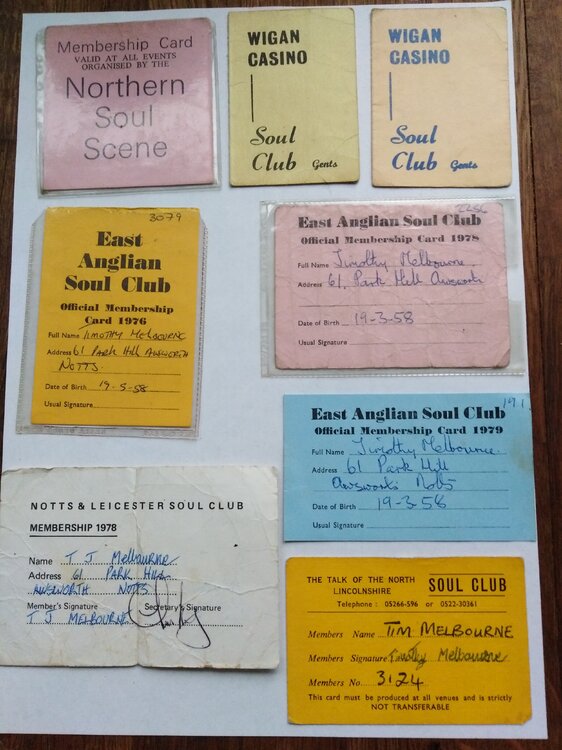 Membership Card
VALID AT ALL EVENTS
ORGANISED BY THE
Northern
Soul
Scene
WIGAN
CASINO
Soul
Club Gents
WIGAN
CASINO
Soul
Club Gents
3079
East
Anglian
Soul Club
Official Membership
Card 1976
Full Name TIMOTHY MELBOURNE
Address 61 PARK HILL AWSWORTH
NOTTS.
Date of Birth 19-5-58
Usual Signature
East Anglian Soul Club
Official Membership Card 1978
Full Name Timothy Melbourne
Address 61, Park Hill Awsworth
Date of Birth 19-3-58
Usual Signature
East Anglian Soul Club
Official Membership Card 1979
Full Name Timothy Melbourne.
Address 61 Park Hill
Awsworth Notts
Date of Birth 19-3-58
Usual Signature
NOTTS & LEICESTER SOUL CLUB
MEMBERSHIP 1978
Name T J Melbourne
Address 61 PARK HILL
AWSWORTH NOTTS
Member's Signature Secretary's Signature
T J MELBOURNE
THE TALK OF THE NORTH
LINCOLNSHIRE SOUL CLUB
Telephone : 05266-596 or 0522-30361
Members Name TIM MELBOURNE
Members Signature Timothy Melbourne
Members No. 3124
This card must be produced at all venues and is strictly
NOT TRANSFERABLE